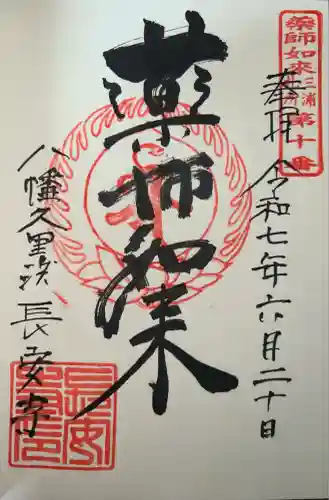 薬師如来三浦第十番
奉拝
令和七年六月二十日
薬師如来
八幡久里浜 長安寺
長安寺印